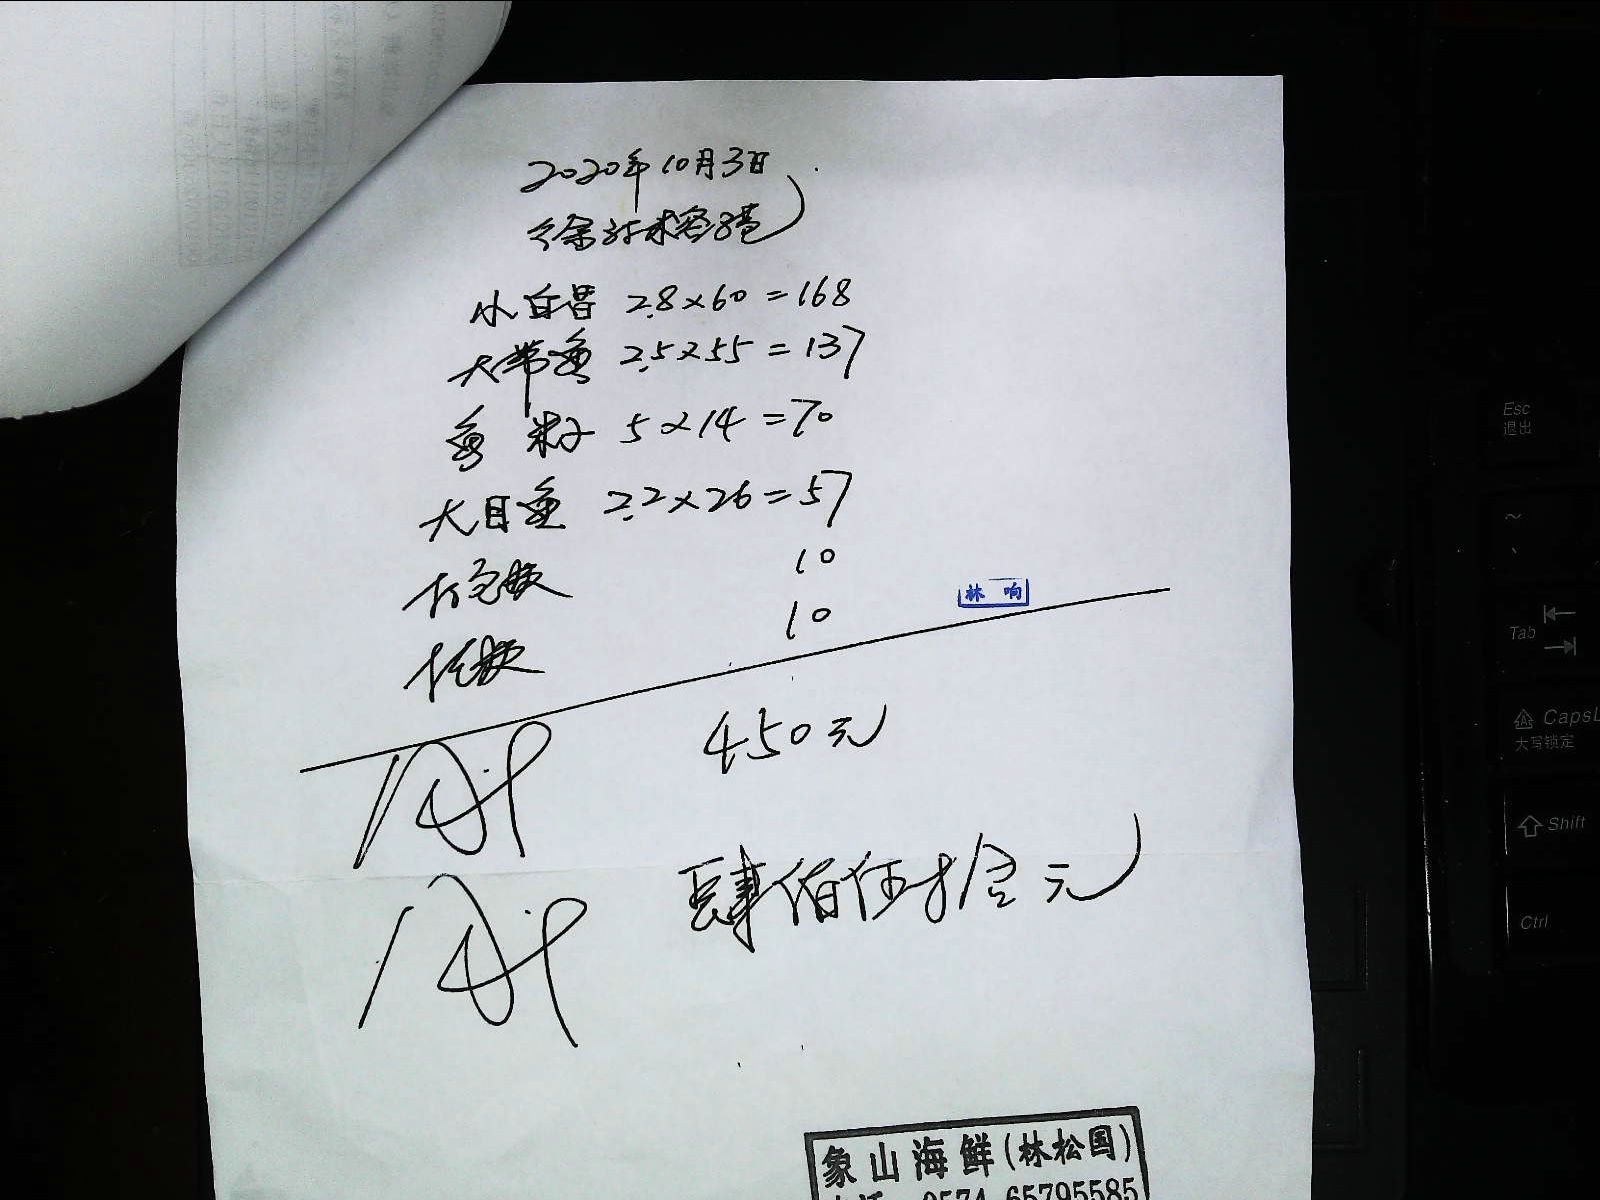 2020年10月3日
小白 2.8×60=168
大带鱼 2.5×55=137
鱼 籽 5×14=70
大目鱼 2.2×26=57
打包 10
10
林 响
450元
肆佰伍拾元
象山海鲜(林松国)
0574 65795585
Esc
退出
~
Tab
CapsL
大写锁定
Shift
Ctrl